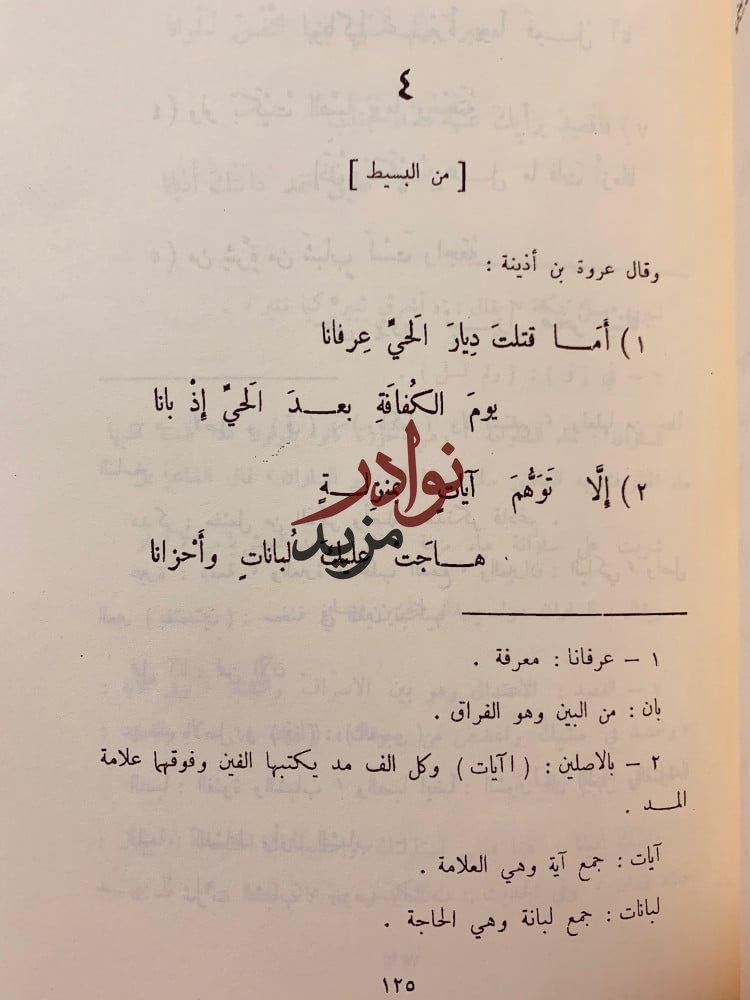 ٤
[ من البسيط ]
وقال عروة بن أذينة :
١) أَمَـــا قتلتَ دِيارَ الَحيِّ عِرفانا
يومَ الكُفافَة بعـــدَ الَحيِّ إِذْ بانا
٢) إِلَّا تَوَهُّمَ آياتٍ بمنزِلـــةٍ
هـــاجَت عليكَ لُباناتٍ وأَحْزانا
نوادر
مزيد
١ – عرفانا : معرفة .
بان : من البين وهو الفراق .
٢ – بالاصلين : ( اآيات ) وكل الف مد يكتبها الفين وفوقهما علامة
المــد .
آيات : جمع آية وهي العلامة .
لبانات : جمع لبانة وهي الحاجة .
١٢٥